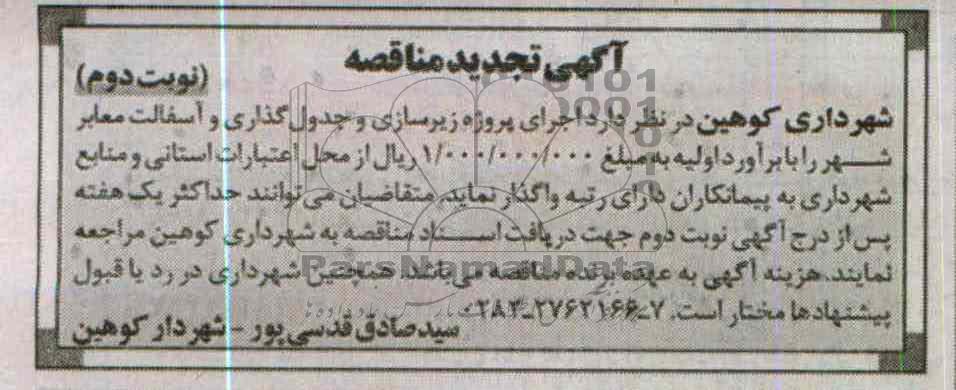 آگهی تجدید مناقصه
(نوبت دوم)
شهرداری کوهین در نظر دارد اجرای پروژه زیرسازی و جدول گذاری و آسفالت معابر
شهر را با برآورد اولیه به مبلغ ۱/۰۰۰/۰۰۰/۰۰۰ ریال از محل اعتبارات استانی و منابع
شهرداری به پیمانکاران دارای رتبه واگذار نماید. متقاضیان می توانند حداکثر یک هفته
پس از درج آگهی نوبت دوم جهت دریافت اسناد مناقصه به شهرداری کوهین مراجعه
نمایند. هزینه آگهی به عهده برنده مناقصه می باشد. همچنین شهرداری در رد یا قبول
پیشنهادها مختار است. ۷-۲۷۶۲۱۶۶-۰۲۸۳
سید صادق قدسی پور - شهردار کوهین
ParsNamadData